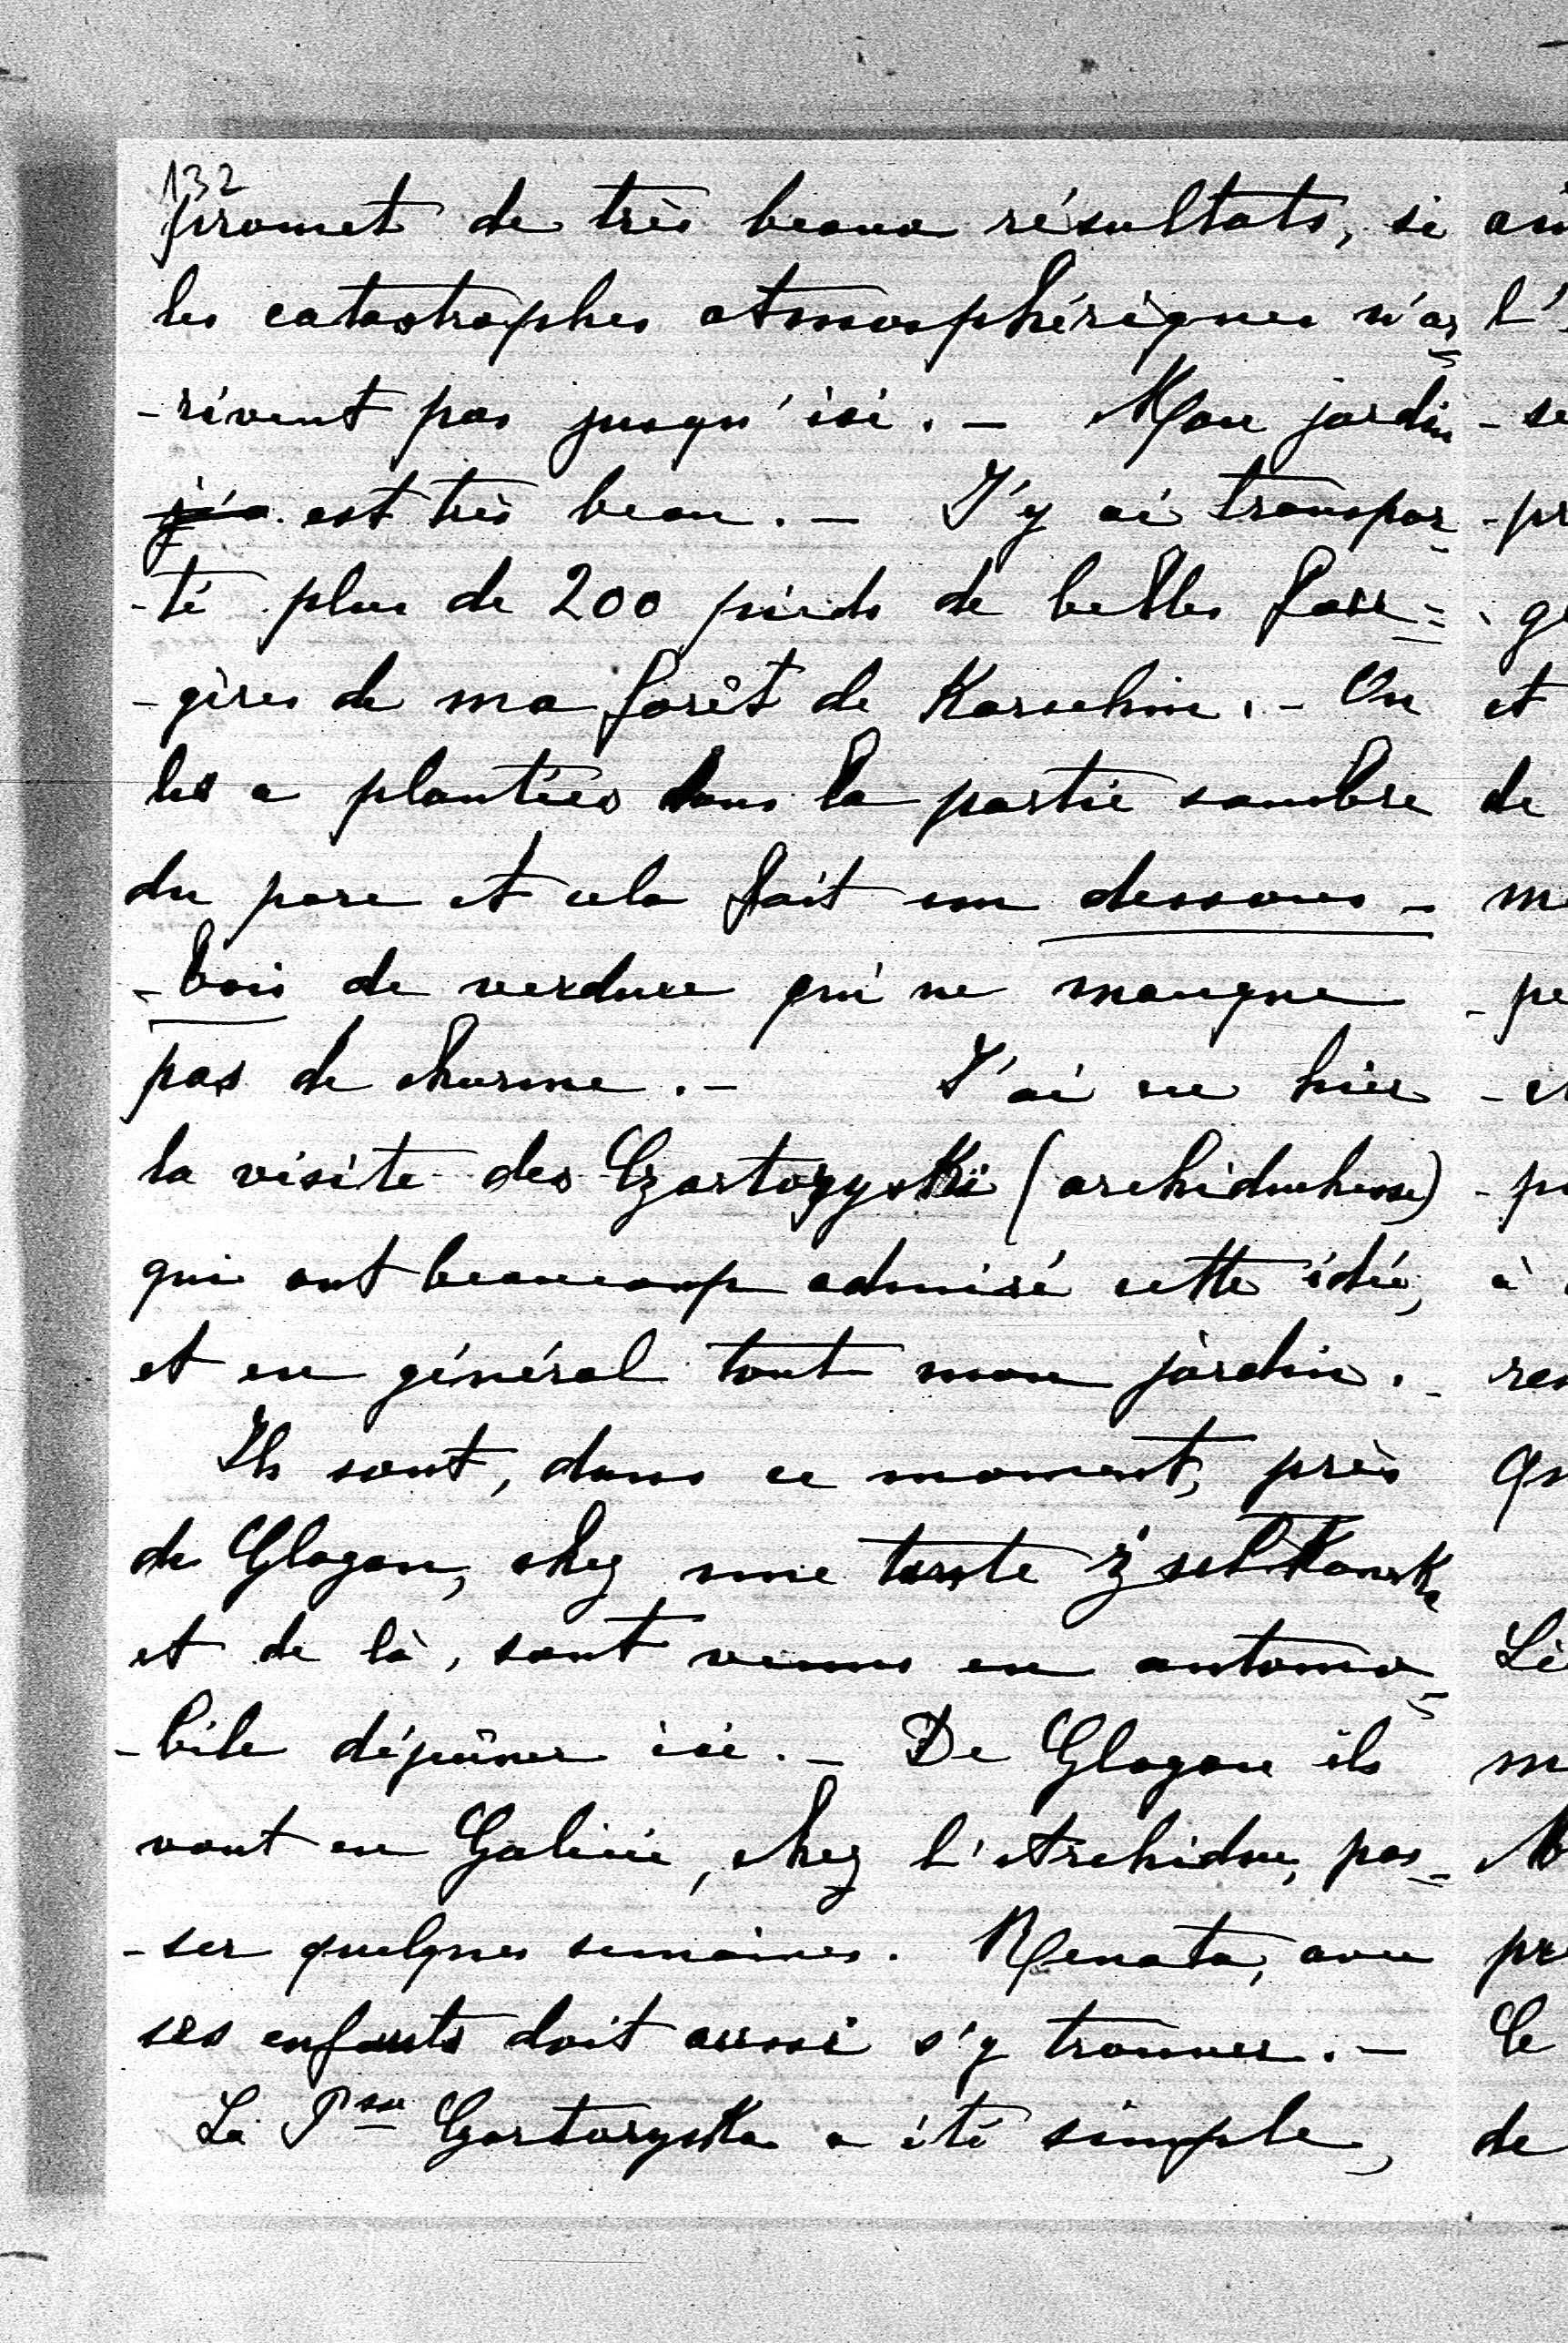 132
promet de très beaux résultats, si
les catastrophes atmosphériques n'ar-
-rivent pas jusqu'ici. — Mon jardin
est très beau. — J'y ai transpor-
-té plus de 200 pieds de belles fou=
-gères de ma forêt de Karschin. — On
les a plantées dans la partie sombre
du parc et cela fait un dessous-
-bois de verdure qui ne manque
pas de charme. — J'ai eu hier
la visite des Czartoryski (archiduchesse)
qui ont beaucoup admiré cette idée,
et en général tout mon jardin. -
Ils sont, dans ce moment, près
de Glogau, chez une tante Żółtowska
et de là, sont venus en automo-
-bile déjeûner ici. — De Glogau ils
vont en Galicie, chez l'Archiduc, pas-
-ser quelques semaines. Renata, avec
ses enfants doit aussi s'y trouver. —
La Psse Czartoryska a été simple,